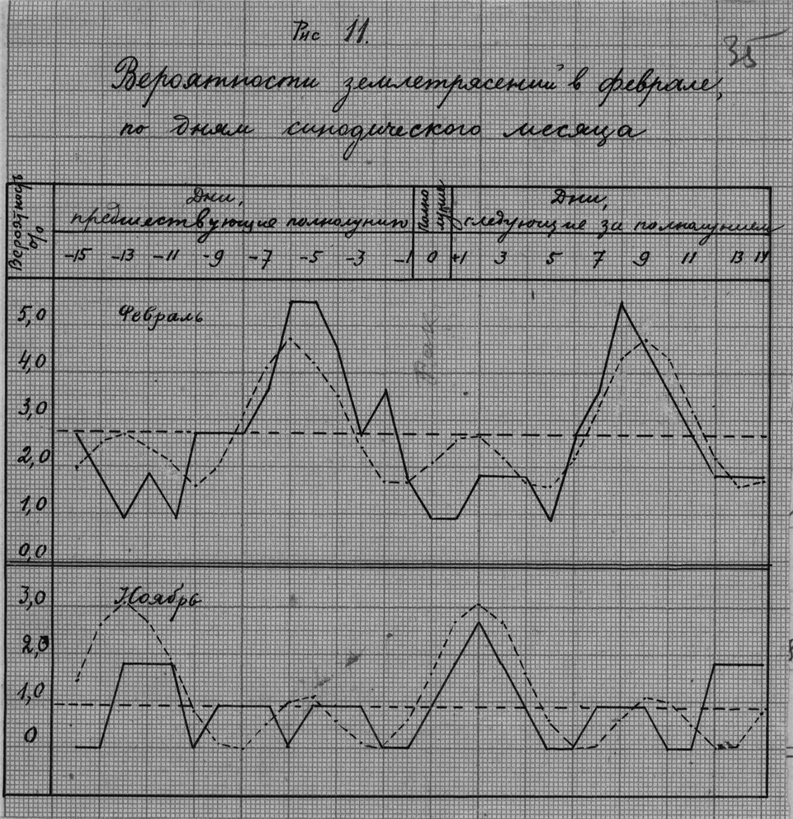 Рис 11.
35
Вероятности землетрясений в феврале,
по дням синодического месяца
Вероятность %
Дни,
предшествующие полнолунию
полнолуние
Дни,
следующие за полнолунием
-15 -13 -11 -9 -7 -5 -3 -1 0 +1 3 5 7 9 11 13 14
Февраль
5,0
4,0
3,0
2,0
1,0
0,0
Ноябрь
3,0
2,0
1,0
0